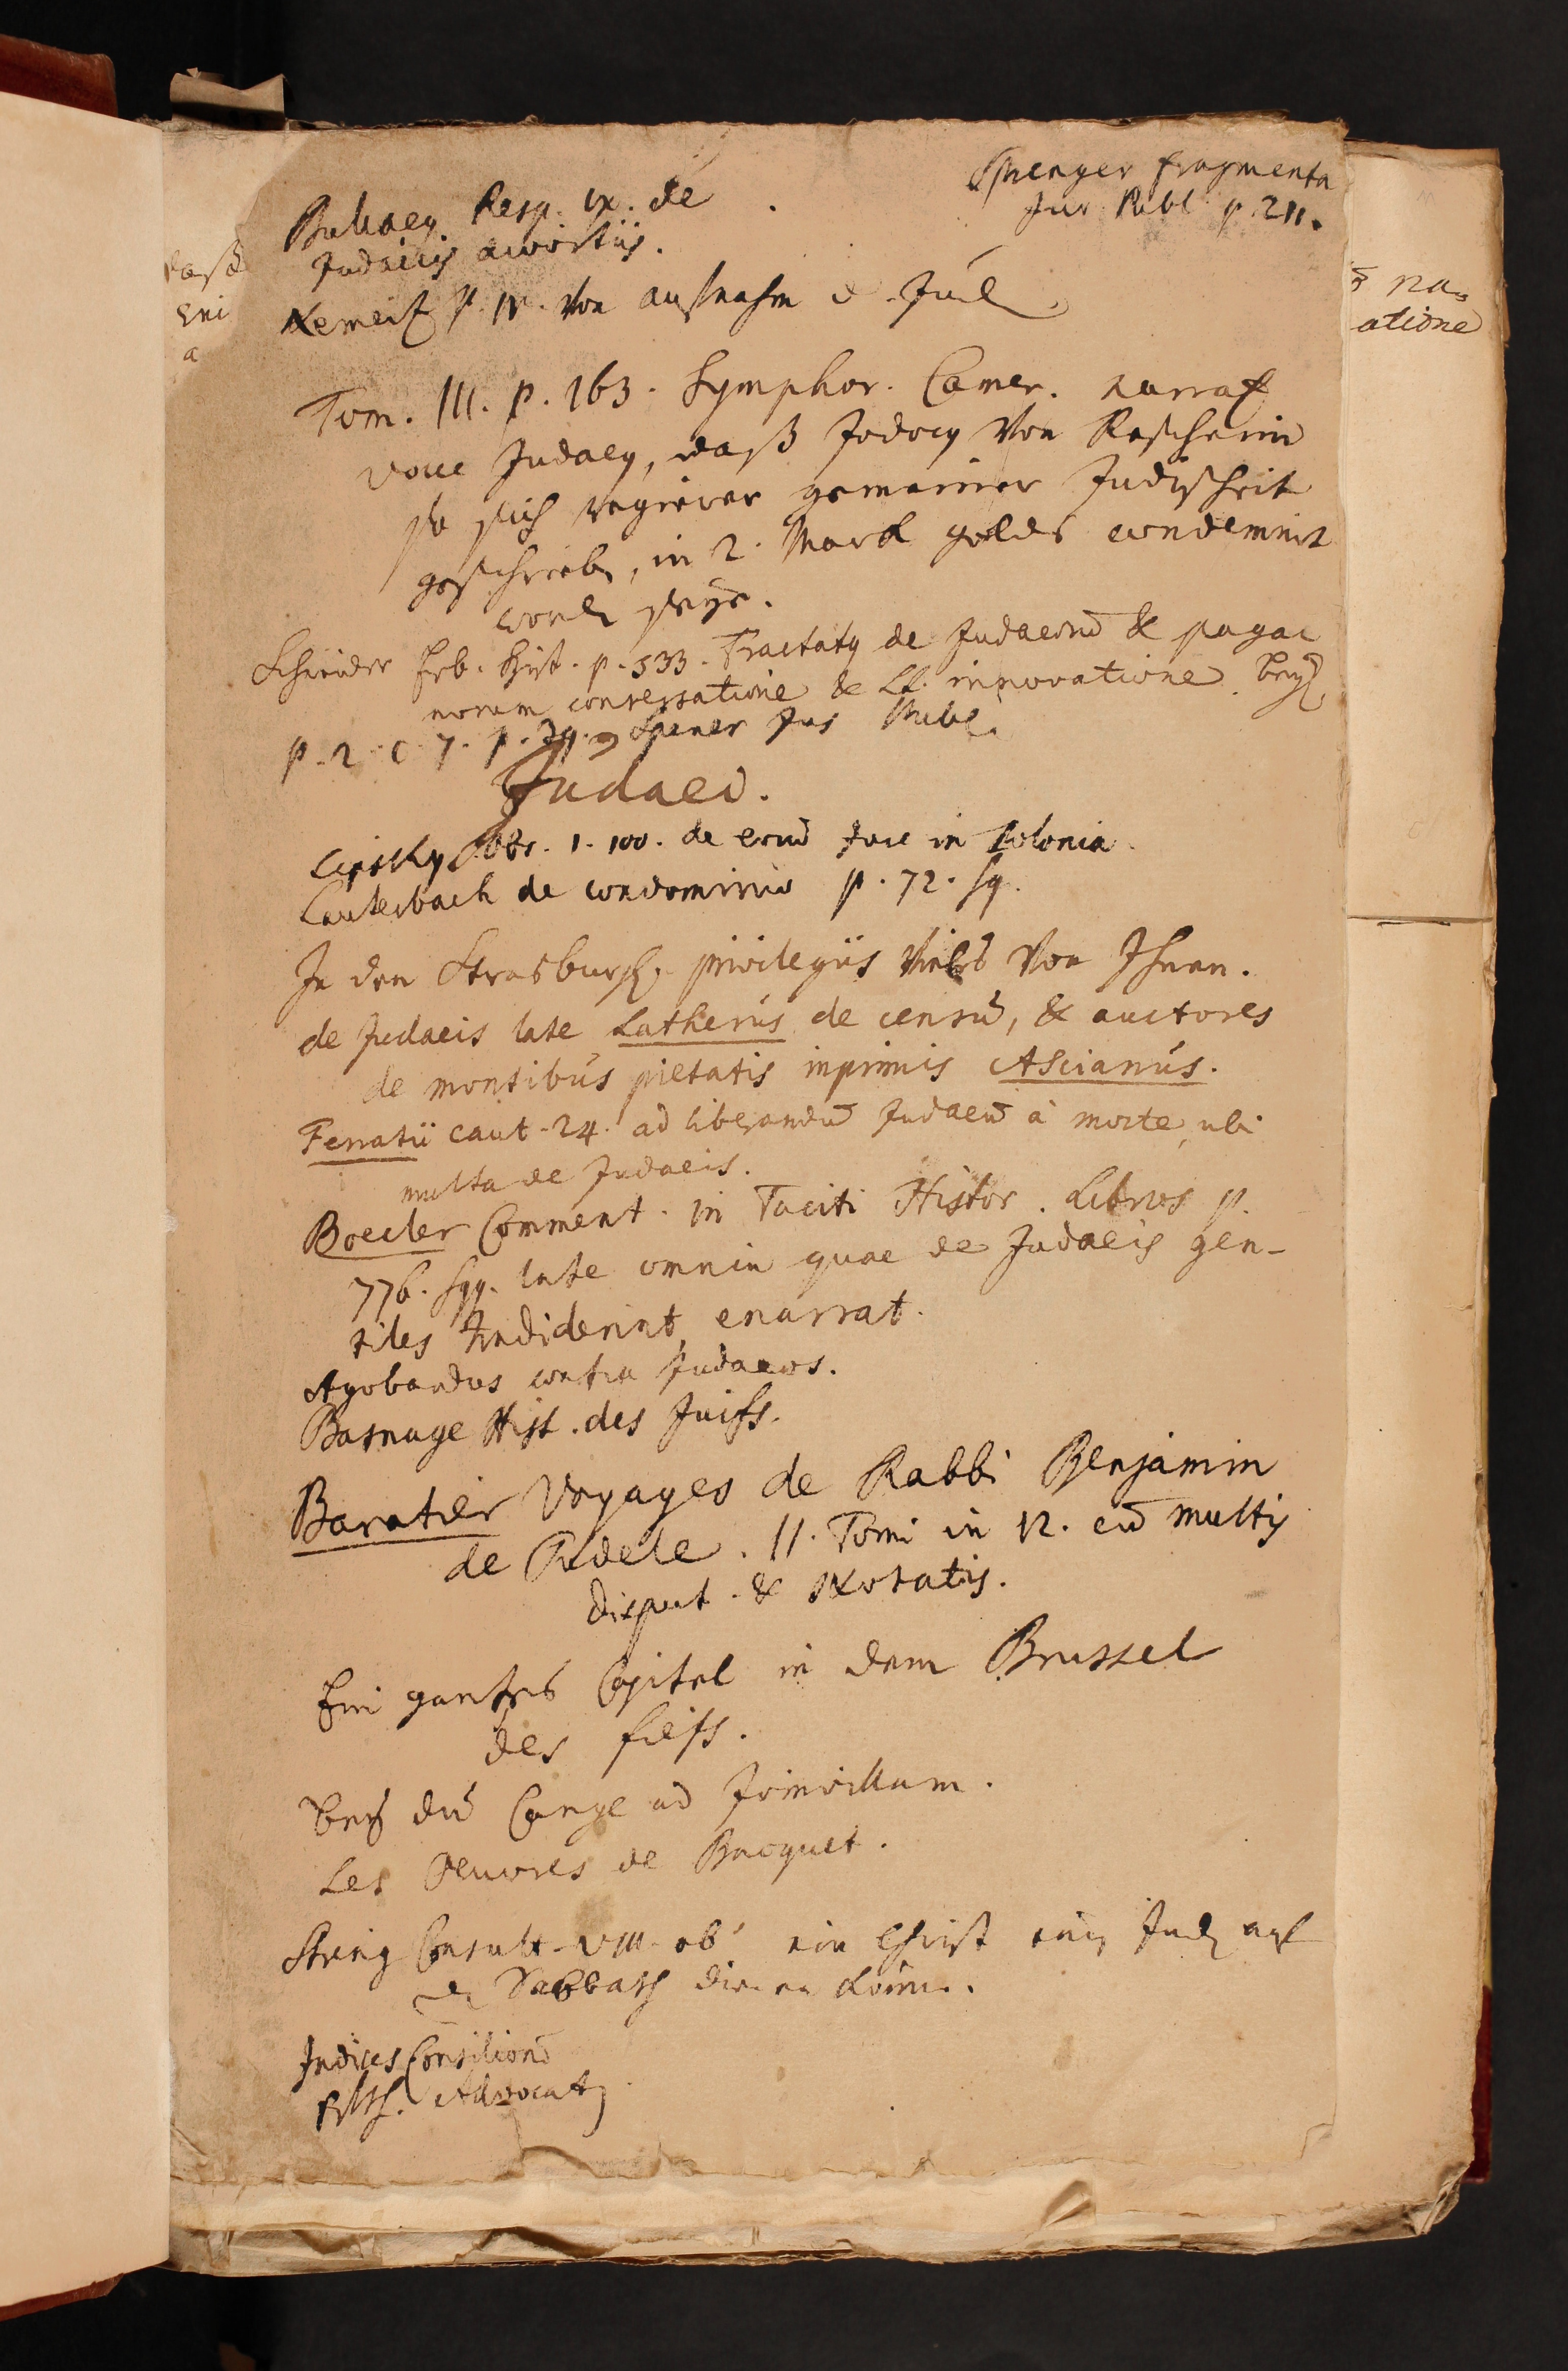 Spenger fragmenta
Jur. Publ. p. 211.
Resp. IX. de
Judaeis
Nemeitz p. IV. Von aufnahm d. Jud.
Tom. III. p. 163. Symphor. Camer. narrat
voce Judaeus, daß Jodocus Von Roscheim
so sich regierer gemeiner Judischeit
geschrieben, in 2. Mark goldes condemnirt
worden seye.
Schneider Erb. Hist. p. 533. Tractatus de Judaeorum & paga
norum conversatione & innovatione. bey
p. 2. c. 7. p. Spener Jus Publ.
Judaei.
Obs. 1. 100. de in Polonia.
Lauterbach de condominio p. 72. sq.
In den Strasburg. privilegiis Vieles Von Ihnen.
de Judaeis late Lutherus de censu, & auctores
de montibus pietatis inprimis Ascianus.
Ferrarii caut. 24. ad liberandum Judaeum à morte, ubi
multa de Judaeis.
Boecler Comment. in Taciti Histor. Libros p.
776. sqq. late omnia quae de Judaeis gen-
tiles tradiderint, enarrat.
Agobardus contra Judaeos.
Basnage Hist. des Juifs.
Baratier Voyages de Rabbi Benjamin
de Tudele. II. Tomi in 12. cum multis
disput. & Notatis.
Ein gantzes Capitel in dem Brussel
des fiefs.
Bey du Cange ad Joinvillam.
Les Oeuvres de Bacquet.
Consult. VIII. ob ein Christ einen Juden auf
den Sabbath dienen könne.
Indices Consiliorum
Advocatus
na=
atione